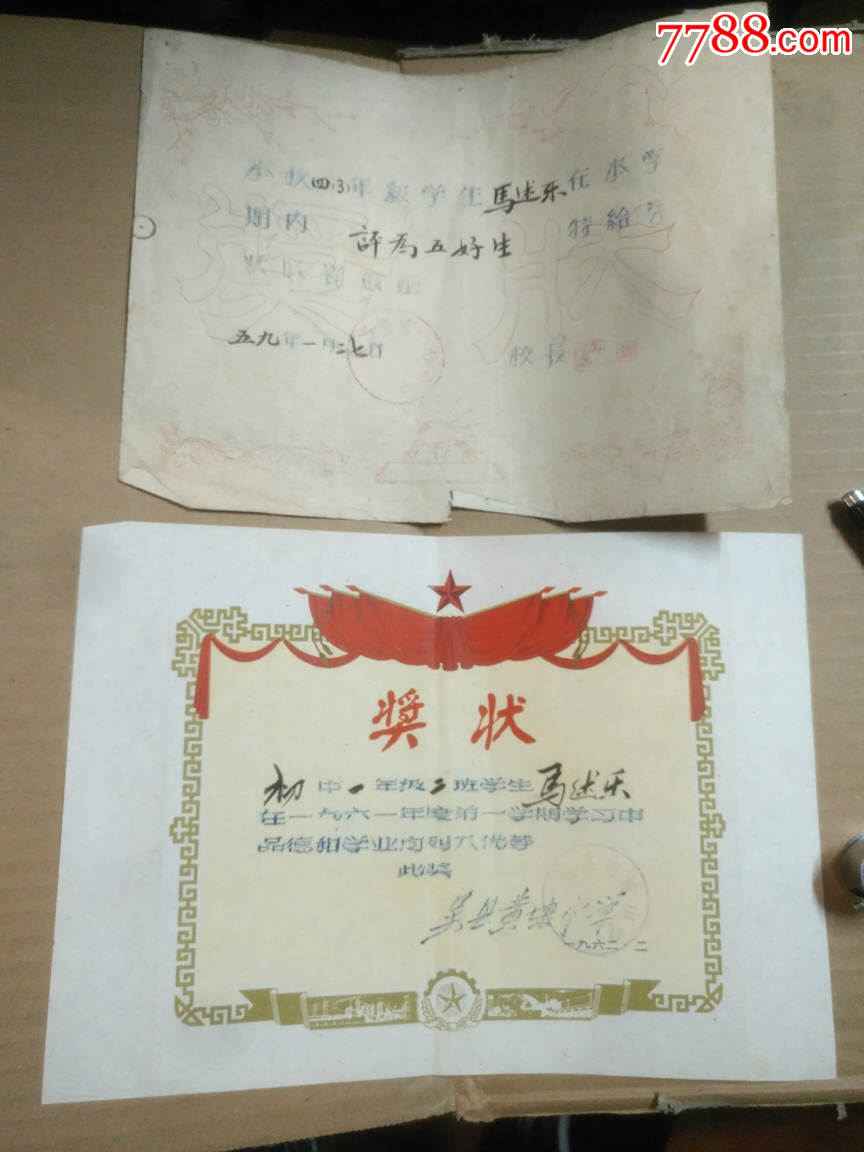 7788.com
本校四(3)年级学生馬述乐在本学
期内 特給予
評為五好生
獎狀
五九年一月二七日
校長
奖状
初中一年级二班学生馬述乐
在一九六一年度第一学期学习中
品德和学业均列入优等
此奖
吴县黄埭中学
一九六二 二